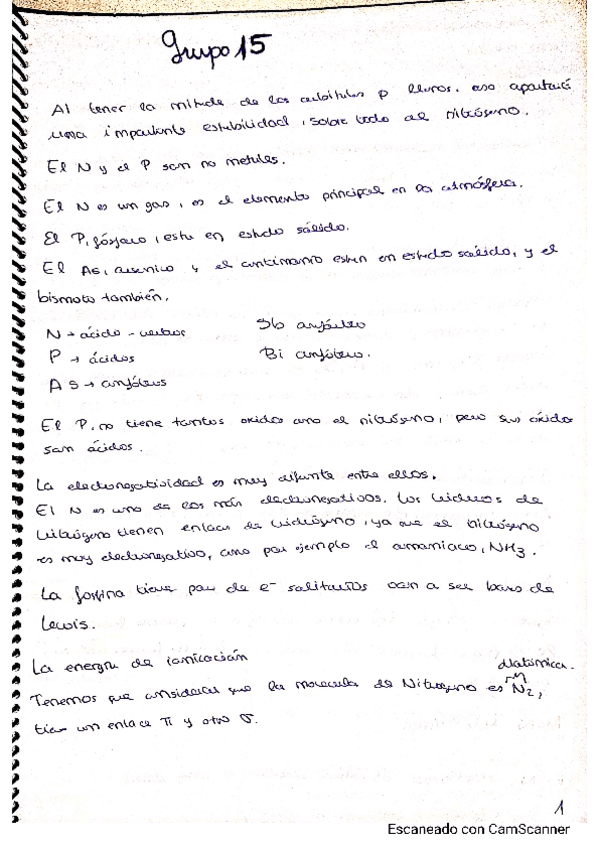 Grupo 15
Al tener la mitad de los orbitales p llenos. eso aportará
una importante estabilidad, sobre todo al nitrógeno.
El N y el P son no metales.
El N es un gas, es el elemento principal en la atmósfera.
El P, fósforo, esta en estado sólido.
El As, arsenico y el antimonio estan en estado sólido, y el
bismoto también.
N → ácido - neutros
Sb anfótero
P → ácidos
Bi anfótero.
AS → anfóteros
El P. no tiene tantos oxidos como el nitrógeno, pero sus óxidos
son ácidos.
La electronegatividad es muy difente entre ellos.
El N es uno de los más electronegativos. Los hidruros de
nitrógeno tienen enlaces de hidrógeno, ya que el nitrógeno
es muy electronegativo, como por ejemplo el amoniaco, NH3.
La fosfina tiene par de e- solitarios van a ser bases de
Lewis.
La energía de ionización
diatómica.
Tenemos que considerar que la molecula de Nitrogeno es N2,
tiene un enlace π y otro σ.
1
Escaneado con CamScanner